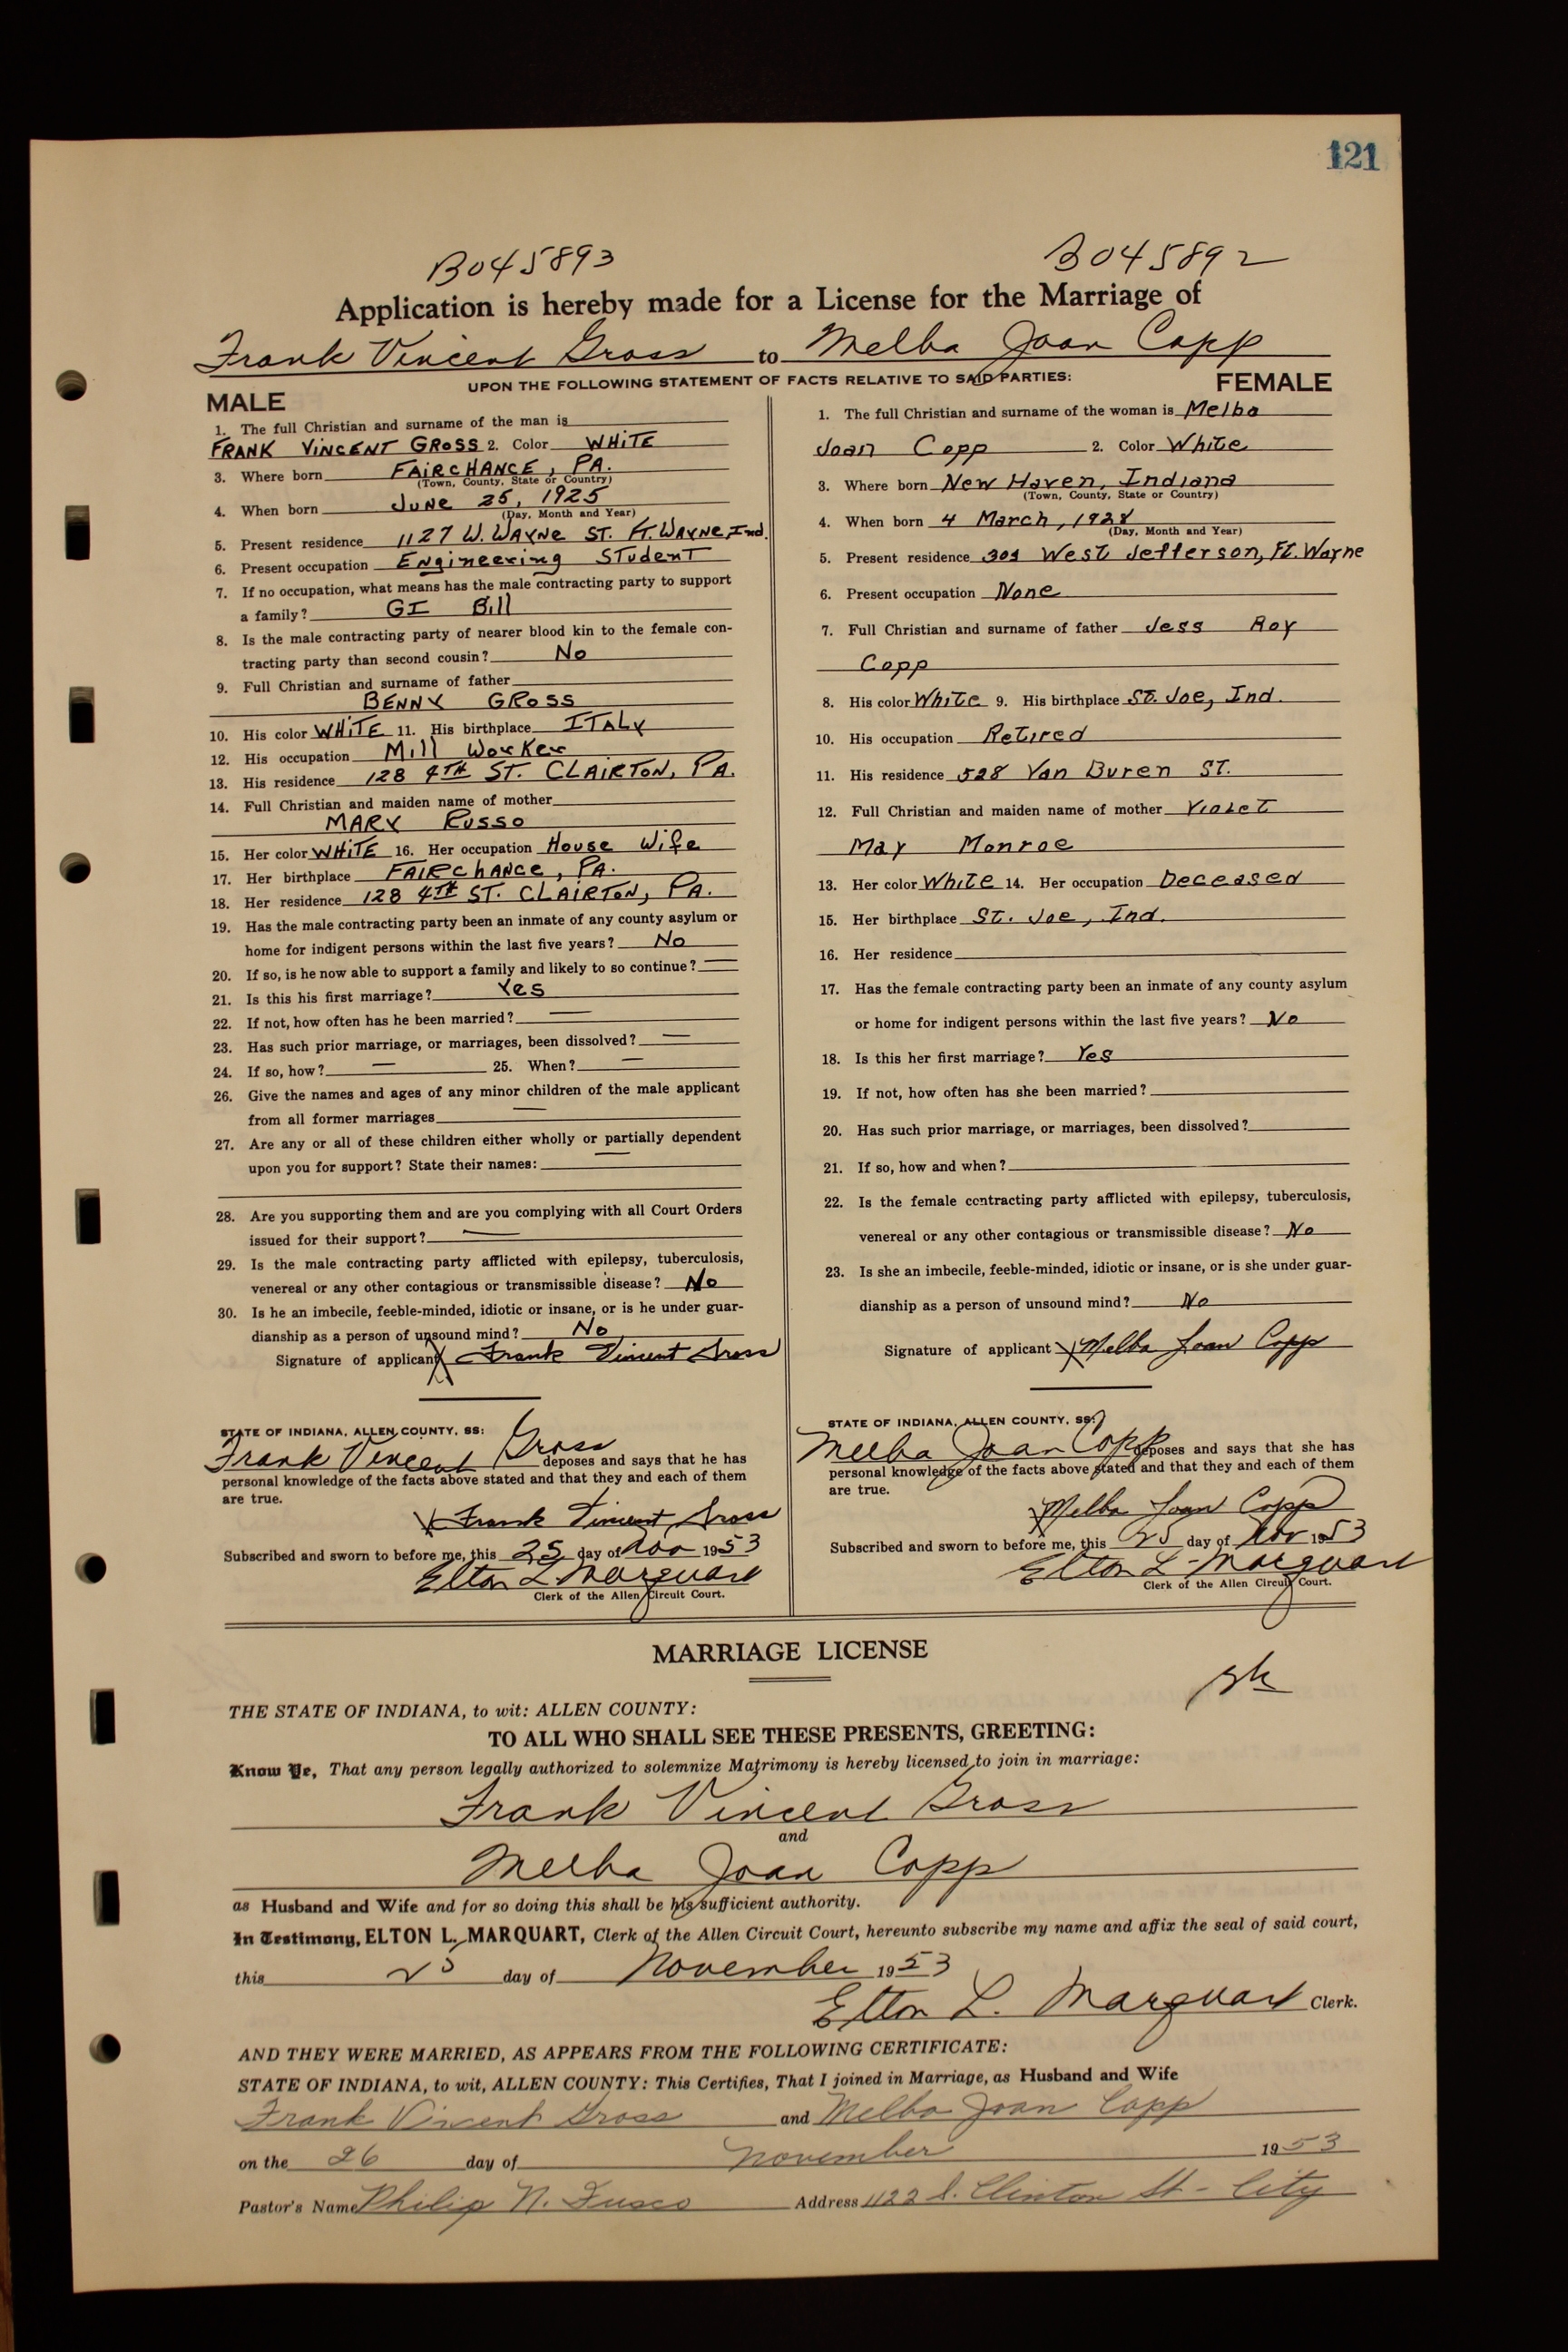 121
B045893 B045892
Application is hereby made for a License for the Marriage of
Frank Vincent Gross to Melba Joan Copp
UPON THE FOLLOWING STATEMENT OF FACTS RELATIVE TO SAID PARTIES:
MALE
1. The full Christian and surname of the man is
FRANK VINCENT GROSS 2. Color WHITE
3. Where born FAIRCHANCE, PA.
(Town, County, State or Country)
4. When born JUNE 25, 1925
(Day, Month and Year)
5. Present residence 1127 W. WAYNE ST. FT. WAYNE, Ind.
6. Present occupation Engineering STudenT
7. If no occupation, what means has the male contracting party to support
a family? GI Bill
8. Is the male contracting party of nearer blood kin to the female con-
tracting party than second cousin? No
9. Full Christian and surname of father
BENNY GROSS
10. His color WHITE 11. His birthplace ITALY
12. His occupation Mill Worker
13. His residence 128 4TH ST. CLAIRTON, PA.
14. Full Christian and maiden name of mother
MARY RUSSO
15. Her color WHITE 16. Her occupation House Wife
17. Her birthplace FAIRCHANCE, PA.
18. Her residence 128 4TH ST. CLAIRTON, PA.
19. Has the male contracting party been an inmate of any county asylum or
home for indigent persons within the last five years? No
20. If so, is he now able to support a family and likely to so continue? —
21. Is this his first marriage? Yes
22. If not, how often has he been married? —
23. Has such prior marriage, or marriages, been dissolved? —
24. If so, how? — 25. When? —
26. Give the names and ages of any minor children of the male applicant
from all former marriages —
27. Are any or all of these children either wholly or partially dependent
upon you for support? State their names: —
28. Are you supporting them and are you complying with all Court Orders
issued for their support? —
29. Is the male contracting party afflicted with epilepsy, tuberculosis,
venereal or any other contagious or transmissible disease? No
30. Is he an imbecile, feeble-minded, idiotic or insane, or is he under guar-
dianship as a person of unsound mind? No
Signature of applicant X Frank Vincent Gross
STATE OF INDIANA, ALLEN COUNTY, SS:
Frank Vincent Gross deposes and says that he has
personal knowledge of the facts above stated and that they and each of them
are true.
X Frank Vincent Gross
Subscribed and sworn to before me, this 25 day of Nov 1953
Elton L Marquart
Clerk of the Allen Circuit Court.
FEMALE
1. The full Christian and surname of the woman is Melba
Joan Copp 2. Color White
3. Where born New Haven, Indiana
(Town, County, State or Country)
4. When born 4 March, 1928
(Day, Month and Year)
5. Present residence 301 West Jefferson, Ft. Wayne
6. Present occupation None
7. Full Christian and surname of father Jess Roy
Copp
8. His color White 9. His birthplace St. Joe, Ind.
10. His occupation Retired
11. His residence 528 Van Buren ST.
12. Full Christian and maiden name of mother Violet
May Monroe
13. Her color White 14. Her occupation Deceased
15. Her birthplace St. Joe, Ind.
16. Her residence
17. Has the female contracting party been an inmate of any county asylum
or home for indigent persons within the last five years? No
18. Is this her first marriage? Yes
19. If not, how often has she been married?
20. Has such prior marriage, or marriages, been dissolved?
21. If so, how and when?
22. Is the female contracting party afflicted with epilepsy, tuberculosis,
venereal or any other contagious or transmissible disease? No
23. Is she an imbecile, feeble-minded, idiotic or insane, or is she under guar-
dianship as a person of unsound mind? No
Signature of applicant X Melba Joan Copp
STATE OF INDIANA, ALLEN COUNTY, SS:
Melba Joan Copp deposes and says that she has
personal knowledge of the facts above stated and that they and each of them
are true.
X Melba Joan Copp
Subscribed and sworn to before me, this 25 day of Nov 1953
Elton L Marquart
Clerk of the Allen Circuit Court.
MARRIAGE LICENSE
THE STATE OF INDIANA, to wit: ALLEN COUNTY:
TO ALL WHO SHALL SEE THESE PRESENTS, GREETING:
Know Ye, That any person legally authorized to solemnize Matrimony is hereby licensed to join in marriage:
Frank Vincent Gross
and
Melba Joan Copp
as Husband and Wife and for so doing this shall be his sufficient authority.
In Testimony, ELTON L. MARQUART, Clerk of the Allen Circuit Court, hereunto subscribe my name and affix the seal of said court,
this 25 day of November 1953
Elton L. Marquart Clerk.
AND THEY WERE MARRIED, AS APPEARS FROM THE FOLLOWING CERTIFICATE:
STATE OF INDIANA, to wit, ALLEN COUNTY: This Certifies, That I joined in Marriage, as Husband and Wife
Frank Vincent Gross and Melba Joan Copp
on the 26 day of November 1953
Pastor's Name Philip N. Fusco Address 1122 S. Clinton St - City